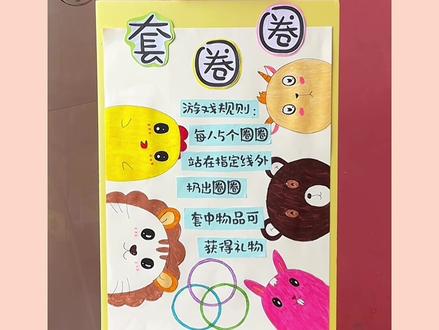 套圈圈
游戏规则:
每人5个圈圈
站在指定线外
扔出圈圈
套中物品可
获得礼物